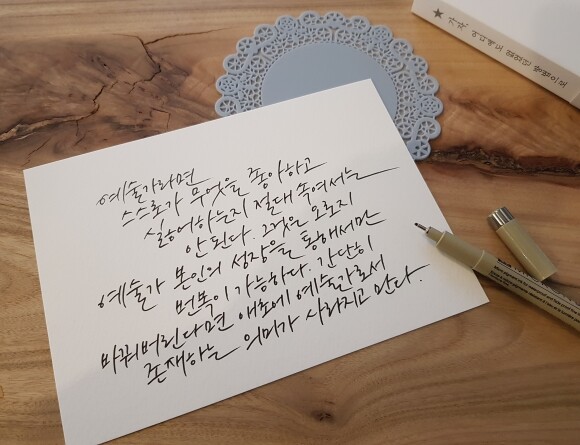 ★ 가장, 어디에도 없었던 방법으로
예술가라면
스스로가 무엇을 좋아하고
싫어하는지 절대 속여서는
안 된다. 그것은 오로지
예술가 본인의 성장을 통해서만
번복이 가능하다. 간단히
바꿔버린다면 애초에 예술가로서
존재하는 의미가 사라지고 만다.